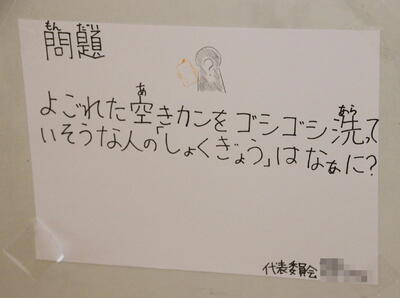 問題
もんだい
よごれた空きカンをゴシゴシ洗って
あ
あら
いそうな人の「しょくぎょう」はなぁに?
代表委員会